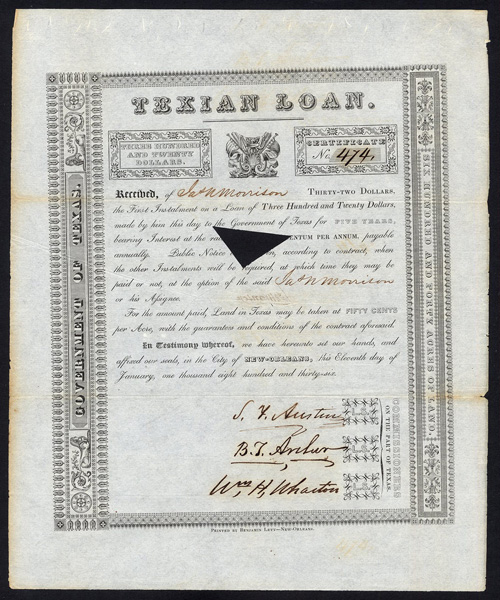 TEXIAN LOAN.
THREE HUNDRED
AND TWENTY
DOLLARS.
CERTIFICATE
No. 474,
Received, of Jas N Morrison THIRTY-TWO DOLLARS,
the First Instalment on a Loan of Three Hundred and Twenty Dollars,
made by him this day to the Government of Texas for FIVE YEARS,
bearing Interest at the ENTUM PER ANNUM, payable
annually. Public Notice en, according to contract, when
the other Instalments will be required, at which time they may be
paid or not, at the option of the said Jas N Morrison
or his Assignee.
For the amount paid, Land in Texas may be taken at FIFTY CENTS
per Acre, with the guarantees and conditions of the contract aforesaid.
In Testimony whereof, we have hereunto set our hands, and
affixed our seals, in the City of NEW-ORLEANS, this Eleventh day of
January, one thousand eight hundred and thirty-six.
S. F. Austin
B. T. Archer
Wm. H. Wharton
COMMISSIONERS
ON THE PART OF TEXAS.
GOVERNMENT OF TEXAS.
SIX HUNDRED AND FORTY ACRES OF LAND.
PRINTED BY BENJAMIN LEVY—NEW-ORLEANS.